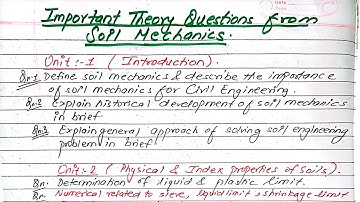 Important Theory Questions from
Soil Mechanics.
Unit :- 1 ( Introduction).
Qn-1 Define soil mechanics & describe the importance
of soil mechanics for Civil Engineering.
Qn-2 Explain historical development of soil mechanics
in brief
Qn-3 Explain general approach of solving soil engineering
problem in brief
Unit :- 2 ( Physical & Index properties of Soils).
Qn. Determination of liquid & plastic limit.
Qn. Numerical related to sieve, liquid limit & shrinkage limit